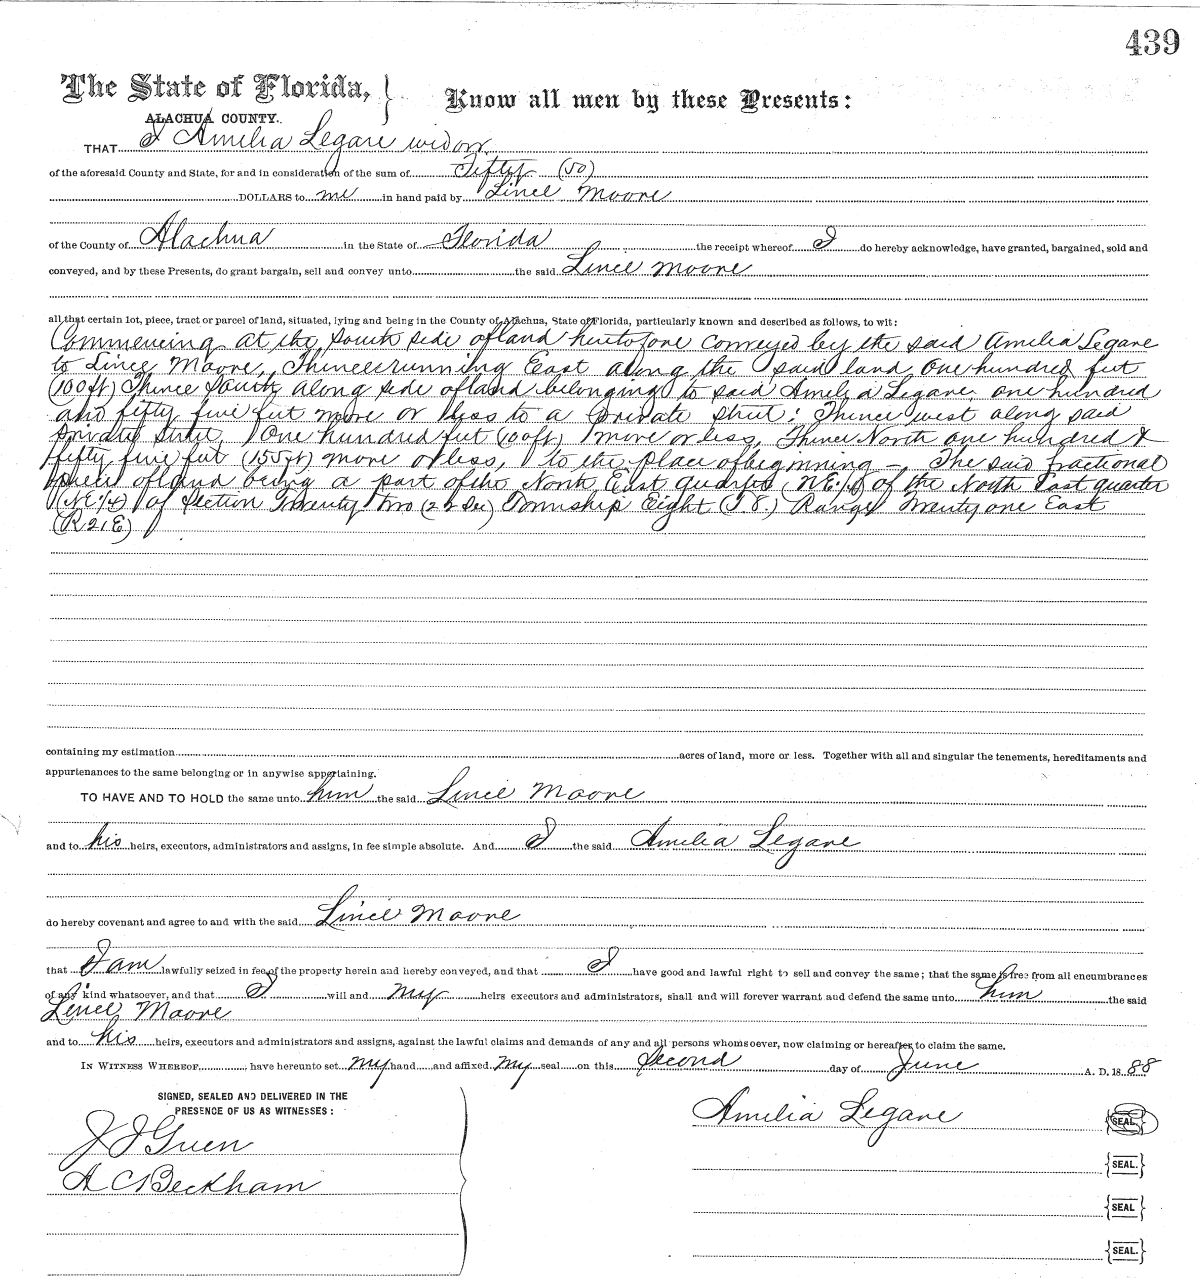 439
The State of Florida,
Know all men by these Presents:
ALACHUA COUNTY.
THAT I Amelia Legare widow
of the aforesaid County and State, for and in consideration of the sum of Fifty (50)
DOLLARS to me in hand paid by Lincel Moore
of the County of Alachua in the State of Florida the receipt whereof I do hereby acknowledge, have granted, bargained, sold and
conveyed, and by these Presents, do grant bargain, sell and convey unto the said Lincel Moore
all that certain lot, piece, tract or parcel of land, situated, lying and being in the County of Alachua, State of Florida, particularly known and described as follows, to wit:
Commencing at the South side of land heretofore conveyed by the said Amelia Legare
to Lincel Moore, Thence running East along the said land one hundred feet
(100 ft) Thence South along side of land belonging to said Amelia Legare one hundred
and fifty five feet more or less to a private street: Thence west along said
private street, One hundred feet (100 ft) more or less, Thence North one hundred &
fifty five feet (155 ft) more or less, to the place of beginning – The said fractional
piece of land being a part of the North East quarter (N.E.¼) of the North East quarter
(N.E.¼) of Section Twenty two (22 Sec) Township Eight (T 8.) Range Twenty one East
(R 21 E)
containing my estimation acres of land, more or less. Together with all and singular the tenements, hereditaments and
appurtenances to the same belonging or in anywise appertaining.
TO HAVE AND TO HOLD the same unto him the said Lincel Moore
and to his heirs, executors, administrators and assigns, in fee simple absolute. And I the said Amelia Legare
do hereby covenant and agree to and with the said Lincel Moore
that I am lawfully seized in fee of the property herein and hereby conveyed, and that I have good and lawful right to sell and convey the same; that the same is free from all encumbrances
of any kind whatsoever, and that I will and my heirs executors and administrators, shall and will forever warrant and defend the same unto him the said
Lincel Moore
and to his heirs, executors and administrators and assigns, against the lawful claims and demands of any and all persons whomsoever, now claiming or hereafter to claim the same.
IN WITNESS WHEREOF, have hereunto set my hand and affixed my seal on this Second day of June A. D. 18 88
SIGNED, SEALED AND DELIVERED IN THE
PRESENCE OF US AS WITNESSES:
Amelia Legare SEAL.
J J Green
SEAL.
A C Beckham
SEAL
SEAL.